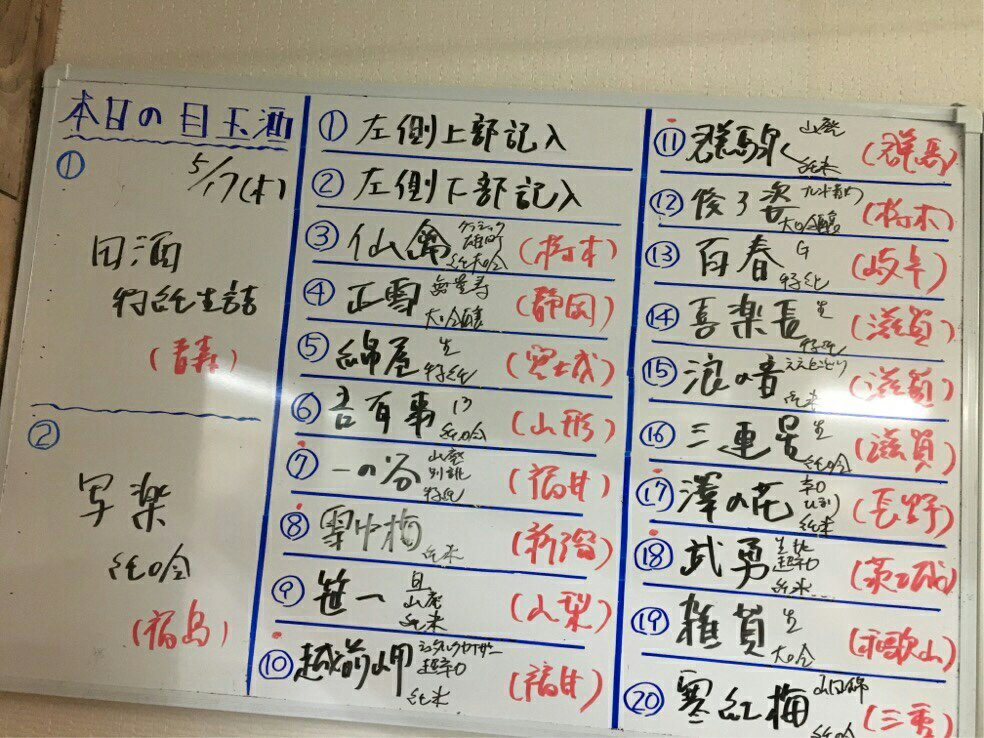 本日の目玉酒
①
5/17(木)
田酒
特純生詰
(青森)
②
写楽
純吟
(福島)
① 左側上部記入
② 左側下部記入
③ 仙禽 クラシック 雄町 純大吟 (栃木)
④ 正雪 大吟醸 (静岡)
⑤ 綿屋 生 特純 (宮城)
⑥ 吾有事 純吟 (山形)
⑦ 一の谷 山廃 別誂 特純 (福井)
⑧ 雪中梅 純米 (新潟)
⑨ 笹一 旦 山廃 純米 (山梨)
⑩ 越前岬 超辛口 純米 (福井)
⑪ 群馬泉 山廃 純米 (群馬)
⑫ 俊了姿 大吟醸 (栃木)
⑬ 百春 G 特純 (岐阜)
⑭ 喜楽長 生 特純 (滋賀)
⑮ 浪の音 ええとこどり 純米 (滋賀)
⑯ 三連星 生 純吟 (滋賀)
⑰ 澤の花 辛口 ひまり 純米 (長野)
⑱ 武勇 生酛 超辛口 純米 (茨城)
⑲ 雑賀 生 大吟 (和歌山)
⑳ 寒紅梅 山田錦 純吟 (三重)